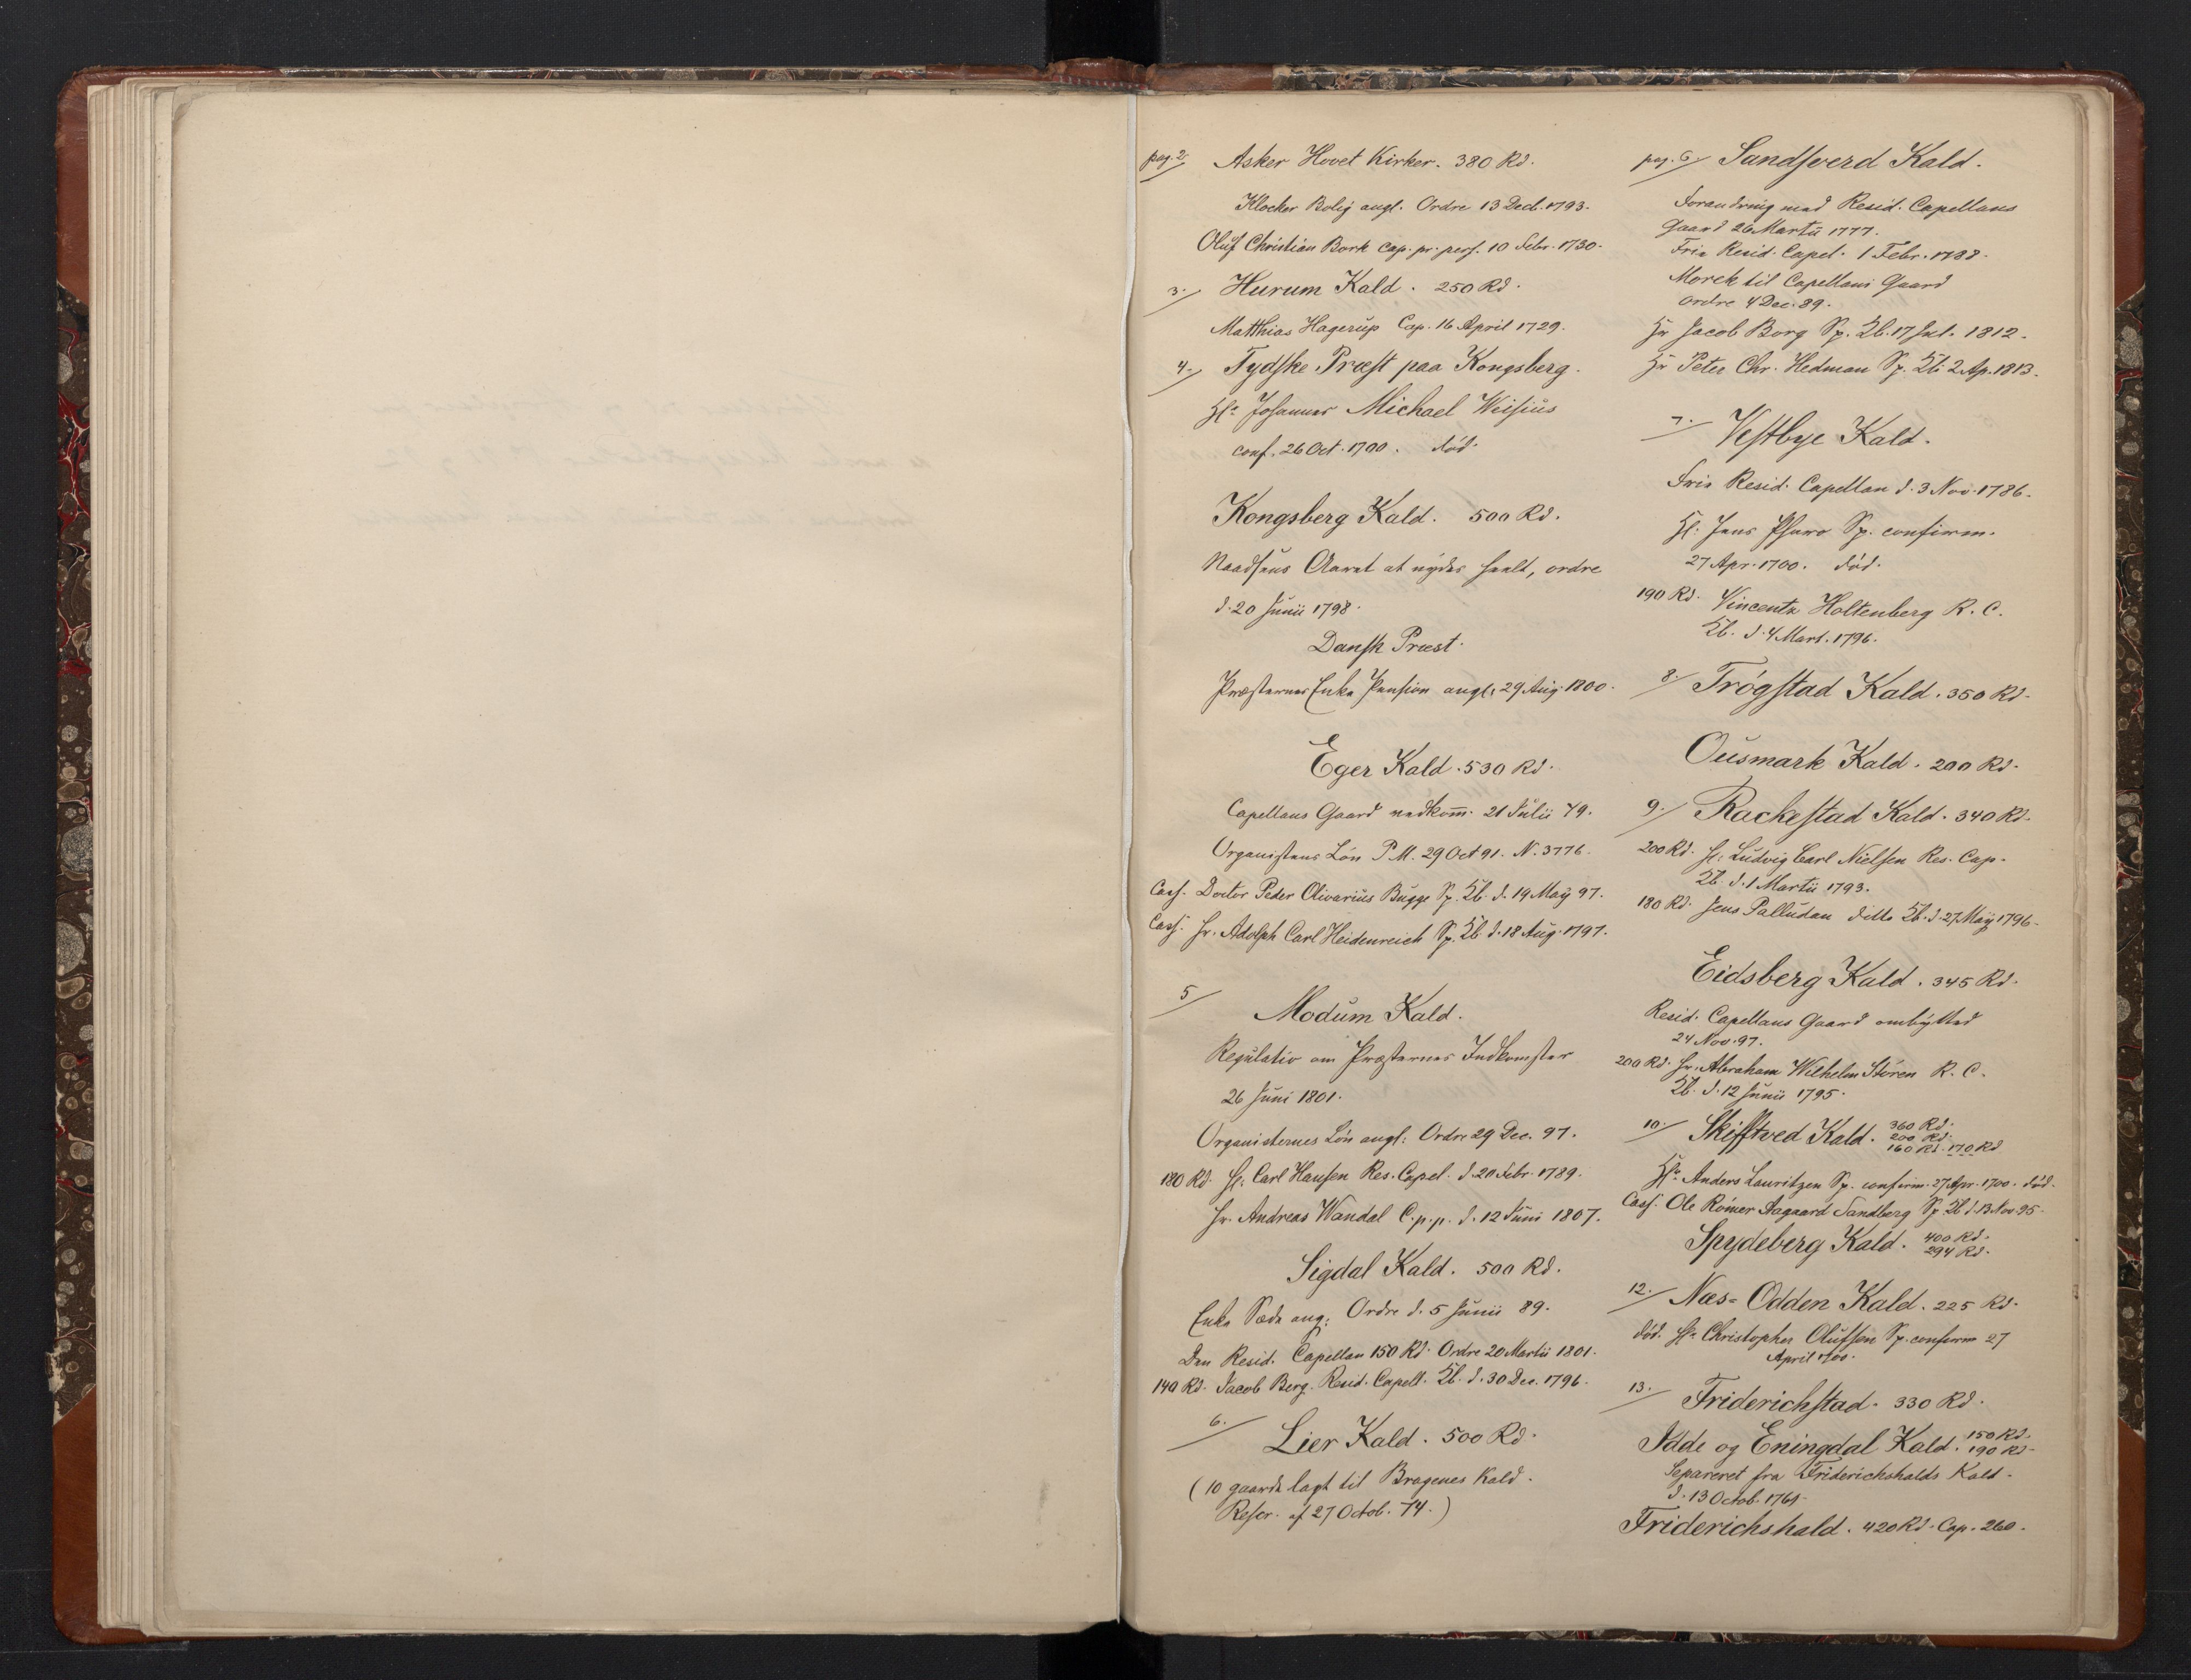 pag. 2. Asker Hovet Kirker. 380 Rd.
Klocker Bolig angl. Ordre 13 Decl. 1793.
Oluf Christian Bork cap. pr. pers. 10 Febr. 1730.
3. Hurum Kald. 250 Rd.
Matthias Hagerup Cap. 16 April 1729.
4. Tydske Præst paa Kongsberg.
Hr. Johannes Michael Weisius
conf. 26 Oct. 1700. död.
Kongsberg Kald. 500 Rd.
Naadsens Aaret at nydes heelt, ordre
d. 20 Junii 1798.
Dansk Præst.
Præsternes Enke Pension angl. 29 Aug. 1800.
Eger Kald. 530 Rd.
Capellans Gaard vedkom. 21 Julii 79.
Organistens Lön P.M. 29 Oct 91. N. 3776.
Cass. Doctor Peder Olivarius Bugge Sp. Kb. d. 19 May 97.
Cass. Hr. Adolph Carl Heidenreich Sp. Kb. d. 18 Aug. 1797.
5 Modum Kald.
Regulativ om Præsternes Indkomster
26 Juni 1801.
Organisternes Lön angl: Ordre 29 Dec. 97.
180 Rd. Hr. Carl Hansen Res. Capel. d. 20 Febr. 1789.
Hr. Andreas Wandal C. p. p. d. 12 Juni 1807.
Sigdal Kald. 500 Rd.
Enke Sæde ang: Ordre d. 5 Junii 89.
Den Resid. Capellan 150 Rd. Ordre 20 Martii 1801.
140 Rd. Jacob Berg. Resid. Capell. Kb. d. 30 Dec. 1796.
6. Lier Kald. 500 Rd.
(10 gaarde lagt til Bragenes Kald.
Rescr. af 27 Octob. 74.)
pag. 6 Sandsverd Kald.
Forandring med Resid. Capellans
Gaard 26 Martii 1777.
Frie Resid. Capel. 1 Febr. 1788.
Morck til Capellani Gaard
ordre 4 Dec. 89.
Hr Jacob Borg Sp. Kb. 17 Jul. 1812.
Hr Peter Chr. Hedman Sp. Kb 2 Ap. 1813.
7. Vestbye Kald.
Frie Resid. Capellan d. 3 Nov. 1786.
Hr. Jens Sp. confirm.
27 Apr. 1700. död.
190 Rd. Vincentz Holtenberg R. C.
Kb. d. 4 Mart. 1796.
8. Trögstad Kald. 350 Rd.
Ousmark Kald. 200 Rd.
9. Rackestad Kald. 340 Rd.
200 Rd. Hr. Ludvig Carl Nielsen Res. Cap.
Kb. d. 1 Martii 1793.
180 Rd. Jens Palludan ditto Kb. d. 27 May 1796.
Eidsberg Kald. 345 Rd.
Resid. Capellans Gaard ombytted
24 Nov. 97.
200 Rd. Hr. Abraham Wilhelm Stören R. C.
Kb. d. 12 Junii 1795.
10. Skifftved Kald. 360 Rd.
200 Rd.
160 Rd. 170 Rd
Hr. Anders Lauritzen Sp. confirm. 27 Apr. 1700. död.
Cass. Ole Römer Aagaard Sandberg Sp. Kb d. 13 Nov. 95.
Spydeberg Kald. 400 Rd.
294 Rd.
12. Næs-Odden Kald. 225 Rd.
död. Hr. Christopher Olufsen Sp. conferm 27
April 1700.
13. Friderichstad. 330 Rd.
Idde og Eningdal Kald. 150 Rd.
190 Rd.
Separeret fra Friderichshalds Kald.
d. 13 Octob. 1761.
Friderichshald. 420 Rd. Cap. 260.